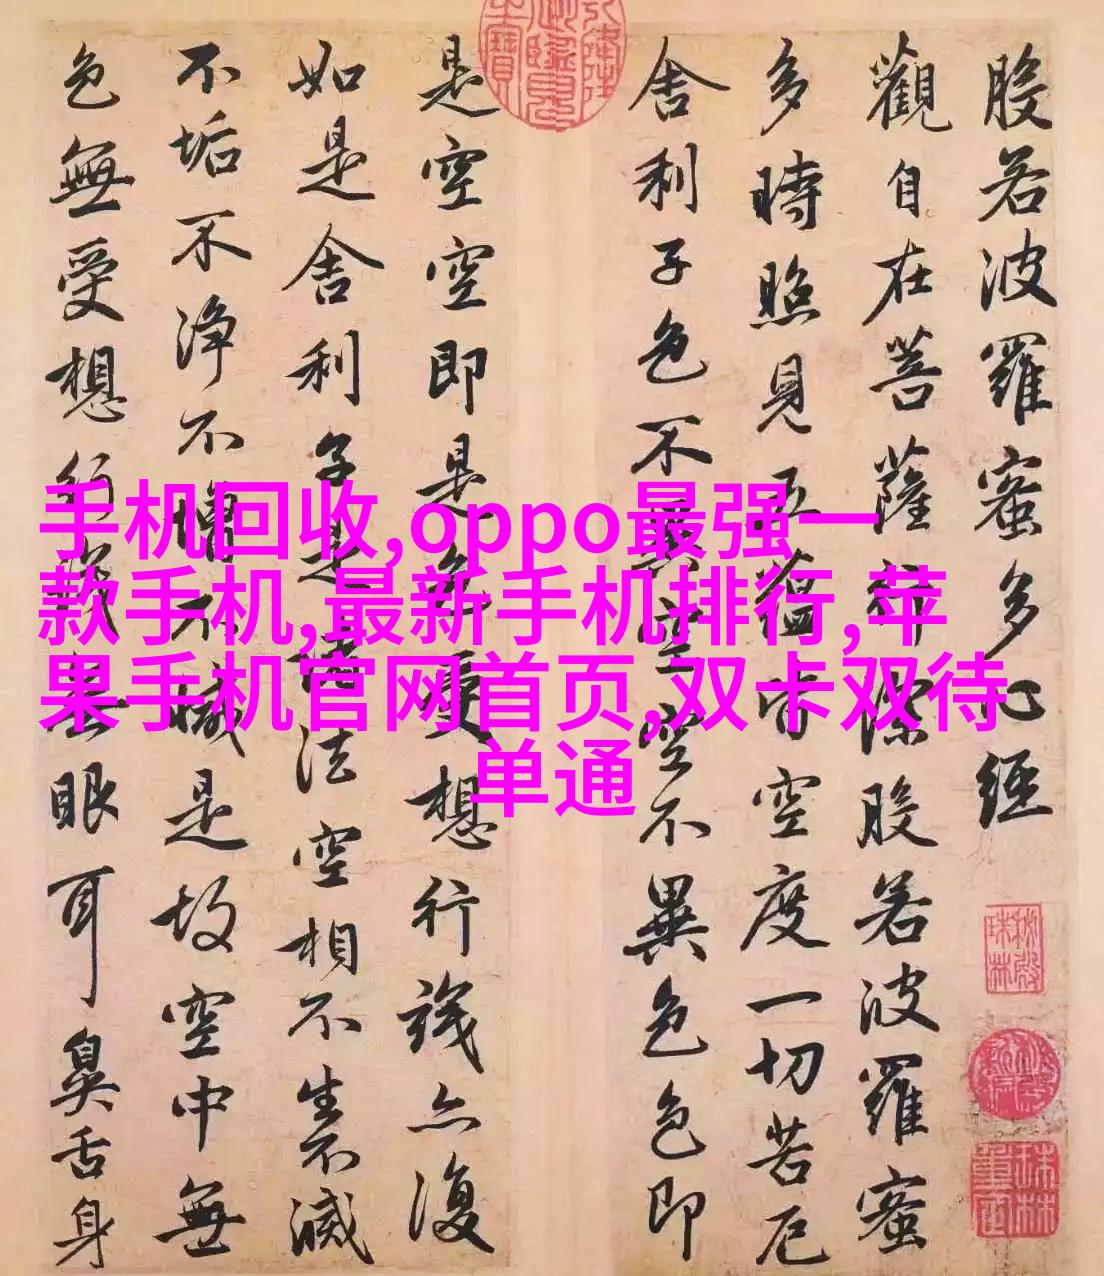 般若波羅蜜多心經
觀自在菩薩行深般若波羅蜜
多時照見五蘊皆空度一切苦厄
舍利子色不異空空不異色色即
是空空即是色受想行識亦復
如是舍利子是諸法空相不生不滅
不垢不淨不增不減是故空中無
色無受想行識無眼耳鼻舌身
手机回收,oppo最强一
款手机,最新手机排行,苹
果手机官网首页,双卡双待
单通
秘殿珠林